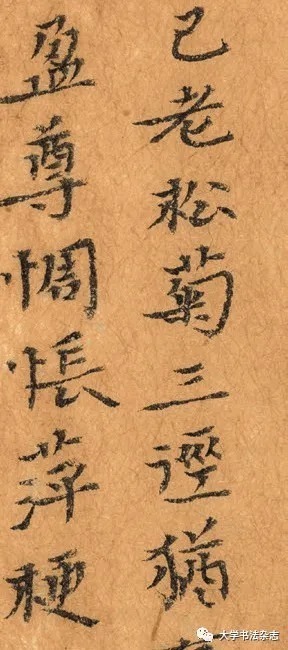 已老松菊三逕猶
盈尊惆悵萍梗
大学书法杂志